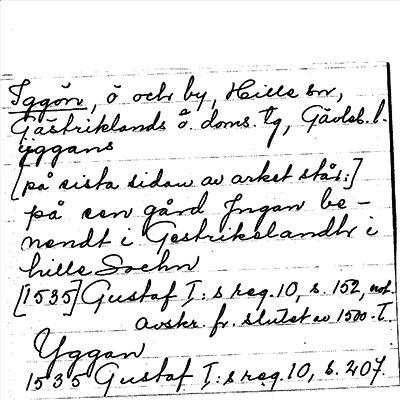 Iggön, ö och by, Hille sn,
Gästriklands ö. doms. tg, Gävleb. l.
yggans
[på sista sidan av arket står:]
på een gård Jngan be-
nendt i Gestrikelandh i
hille Sochn
[1535] Gustaf I:s reg. 10, s. 152, not.
avskr. fr. slutet av 1500-t.
Yggan
1535 Gustaf I:s reg. 10, s. 207.